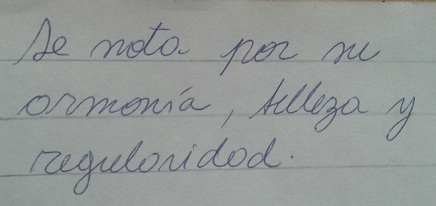 Se nota por su
armonía, belleza y
regularidad.